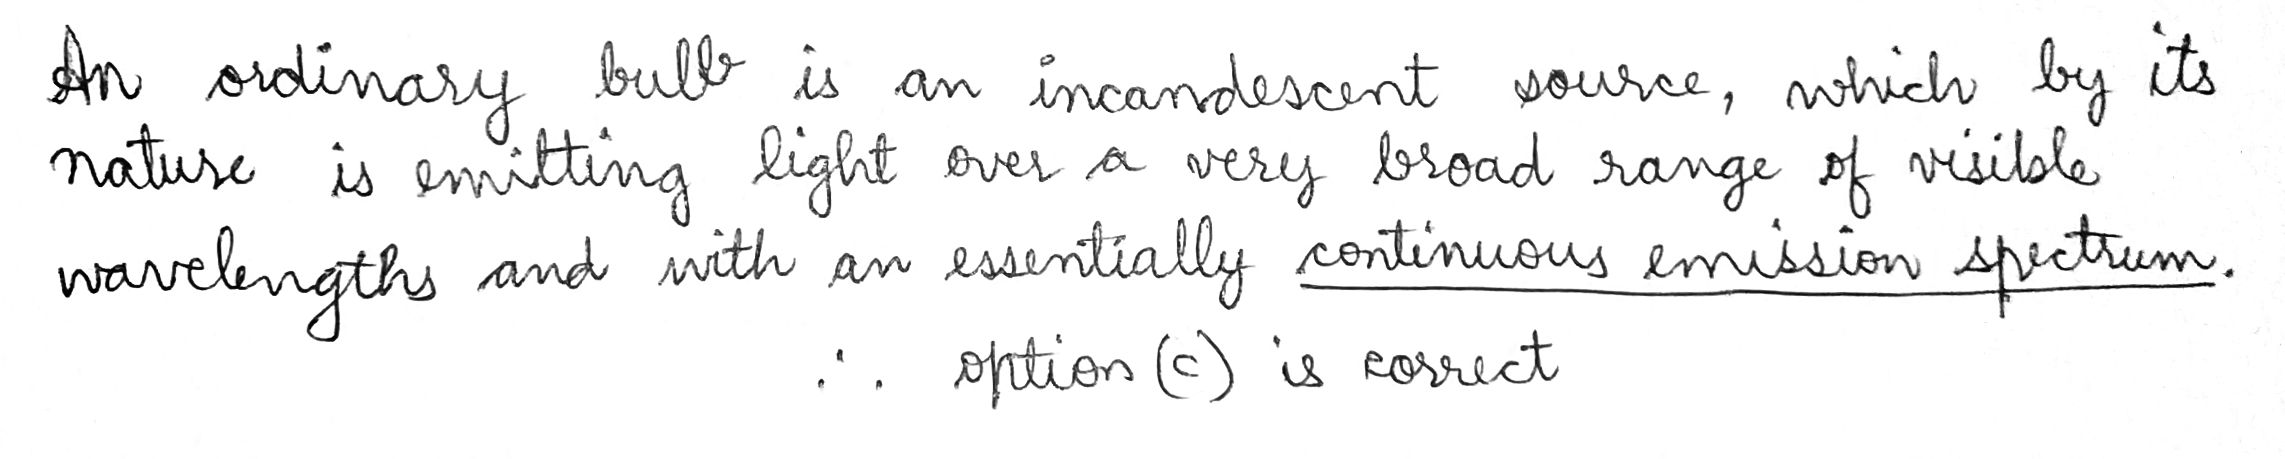 An ordinary bulb is an incandescent source, which by its
nature is emitting light over a very broad range of visible
wavelengths and with an essentially continuous emission spectrum.
∴ option (c) is correct